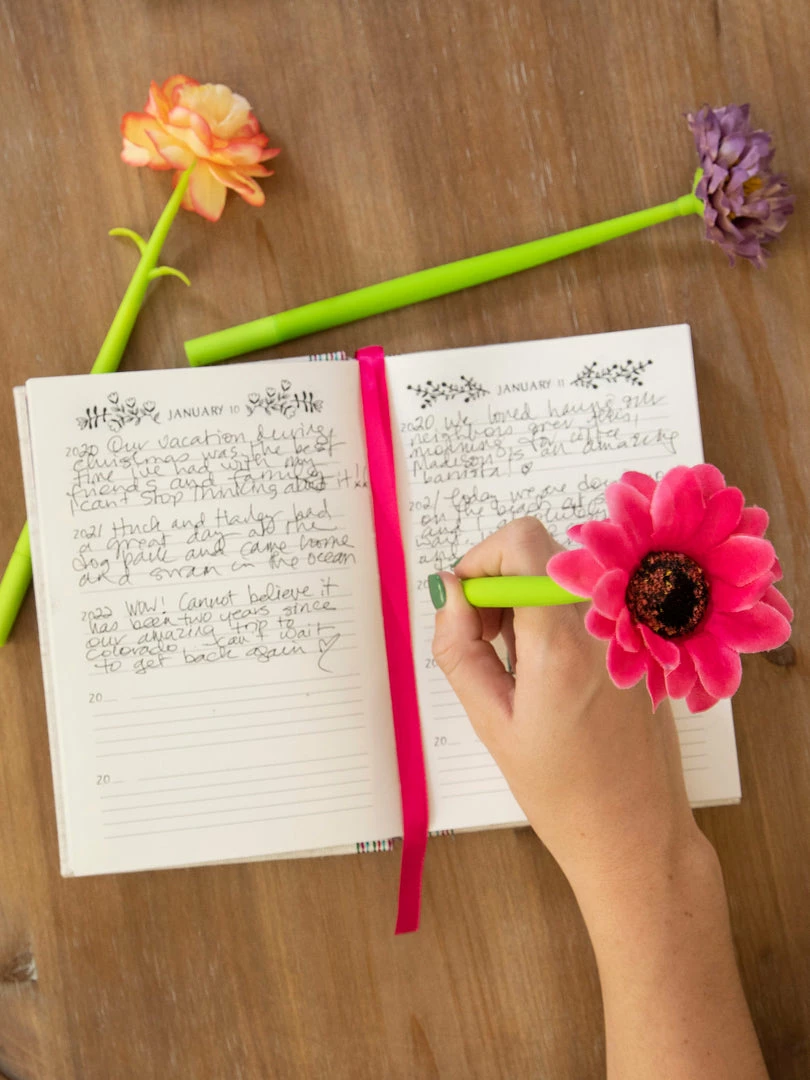 JANUARY 10
2020 Our vacation during
Christmas was the best
time we had with my
friends and family
I can't stop thinking about it!!
2021 Huck and Harley had
a great day at the
dog park and came home
and swam in the ocean
2022 WOW! Cannot believe it
has been two years since
our amazing trip to
Colorado. Can't wait
to get back again
20
20
JANUARY 11
2020 We loved having our
neighbors over this
morning for coffee
Madison is an amazing
barista!
2021 Today we are
on the beach at
and
20
20